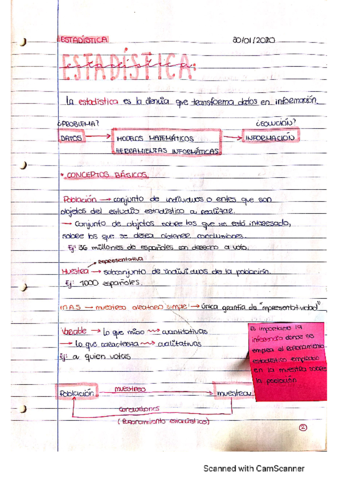 ESTADÍSTICA 30/01/2020
ESTADÍSTICA:
La estadística es la ciencia que transforma datos en información
¿PROBLEMA? ¿SOLUCIÓN?
DATOS → MODELOS MATEMÁTICOS → INFORMACIÓN
HERRAMIENTAS INFORMÁTICAS
• CONCEPTOS BÁSICOS
Población → conjunto de individuos o entes que son
objetos del estudio estadístico a realizar.
→ conjunto de objetos sobre los que se está interesado,
sobre los que se desea obtener conclusiones.
Ej: 36 millones de españoles con derecho a voto.
representativa
Muestra → subconjunto de individuos de la población.
Ej: 1000 españoles.
M.A.S → muestreo aleatorio simple → única garantía de "representatividad"
Variable → lo que mido → cuantitativas
→ lo que caracteriza → cualitativas
Ej: a quien votas
Es importante
donde se
emplea el razonamiento
estadístico
en la muestra sobre
la población.
Población muestreo muestra
Conclusiones
(Razonamiento estadístico)
Scanned with CamScanner